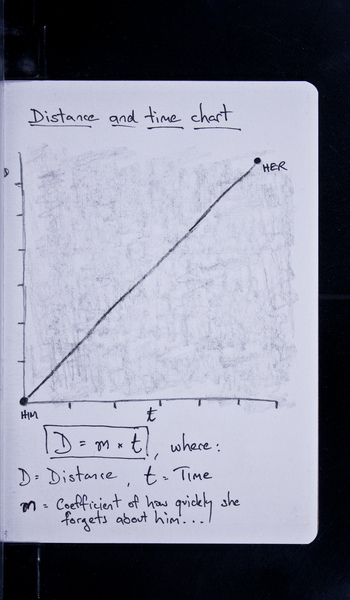 Distance and time chart
D
HER
HIM
t
D = m * t, where:
D = Distance, t = Time
m = Coefficient of how quickly she
forgets about him...